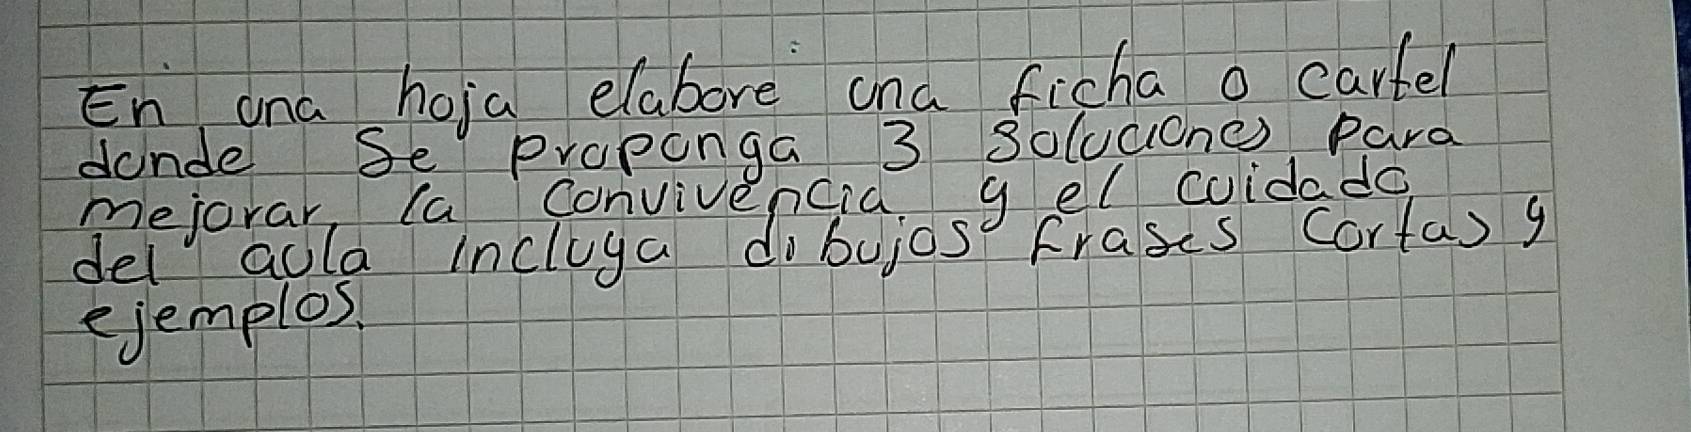 En una hoja elabore una ficha o cartel
donde se proponga 3 soluciones para
mejorar la convivencia y el cuidado
del aula incluya dibujos frases cortas y
ejemplos.